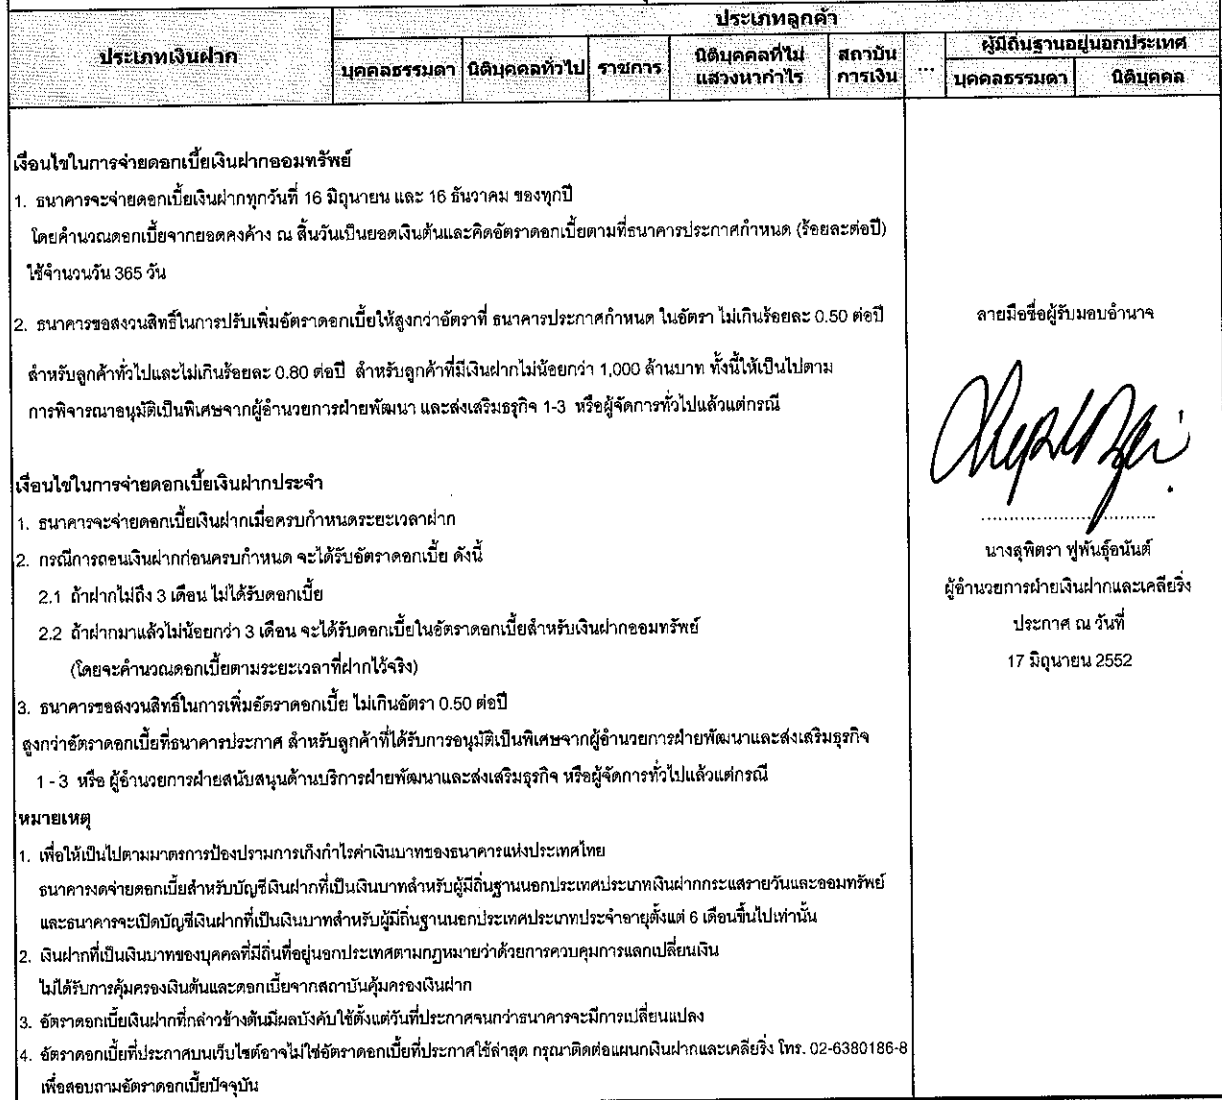 ประเภทลูกค้า
ประเภทเงินฝาก
บุคคลธรรมดา
นิติบุคคลทั่วไป
ราชการ
นิติบุคคลที่ไม่
แสวงหากำไร
สถาบัน
การเงิน
...
ผู้มีถิ่นฐานอยู่นอกประเทศ
บุคคลธรรมดา
นิติบุคคล
เงื่อนไขในการจ่ายดอกเบี้ยเงินฝากออมทรัพย์
1. ธนาคารจะจ่ายดอกเบี้ยเงินฝากทุกวันที่ 16 มิถุนายน และ 16 ธันวาคม ของทุกปี
โดยคำนวณดอกเบี้ยจากยอดคงค้าง ณ สิ้นวันเป็นยอดเงินต้นและคิดอัตราดอกเบี้ยตามที่ธนาคารประกาศกำหนด (ร้อยละต่อปี)
ใช้จำนวนวัน 365 วัน
2. ธนาคารขอสงวนสิทธิ์ในการปรับเพิ่มอัตราดอกเบี้ยให้สูงกว่าอัตราที่ ธนาคารประกาศกำหนด ในอัตรา ไม่เกินร้อยละ 0.50 ต่อปี
สำหรับลูกค้าทั่วไปและไม่เกินร้อยละ 0.80 ต่อปี สำหรับลูกค้าที่มีเงินฝากไม่น้อยกว่า 1,000 ล้านบาท ทั้งนี้ให้เป็นไปตาม
การพิจารณาอนุมัติเป็นพิเศษจากผู้อำนวยการฝ่ายพัฒนา และส่งเสริมธุรกิจ 1-3 หรือผู้จัดการทั่วไปแล้วแต่กรณี
เงื่อนไขในการจ่ายดอกเบี้ยเงินฝากประจำ
1. ธนาคารจะจ่ายดอกเบี้ยเงินฝากเมื่อครบกำหนดระยะเวลาฝาก
2. กรณีการถอนเงินฝากก่อนครบกำหนด จะได้รับอัตราดอกเบี้ย ดังนี้
2.1 ถ้าฝากไม่ถึง 3 เดือน ไม่ได้รับดอกเบี้ย
2.2 ถ้าฝากมาแล้วไม่น้อยกว่า 3 เดือน จะได้รับดอกเบี้ยในอัตราดอกเบี้ยสำหรับเงินฝากออมทรัพย์
(โดยจะคำนวณดอกเบี้ยตามระยะเวลาที่ฝากไว้จริง)
3. ธนาคารขอสงวนสิทธิ์ในการเพิ่มอัตราดอกเบี้ย ไม่เกินอัตรา 0.50 ต่อปี
สูงกว่าอัตราดอกเบี้ยที่ธนาคารประกาศ สำหรับลูกค้าที่ได้รับการอนุมัติเป็นพิเศษจากผู้อำนวยการฝ่ายพัฒนาและส่งเสริมธุรกิจ
1 - 3 หรือ ผู้อำนวยการฝ่ายสนับสนุนด้านบริการฝ่ายพัฒนาและส่งเสริมธุรกิจ หรือผู้จัดการทั่วไปแล้วแต่กรณี
หมายเหตุ
1. เพื่อให้เป็นไปตามมาตรการป้องปรามการเก็งกำไรค่าเงินบาทของธนาคารแห่งประเทศไทย
ธนาคารงดจ่ายดอกเบี้ยสำหรับบัญชีเงินฝากที่เป็นเงินบาทสำหรับผู้มีถิ่นฐานนอกประเทศประเภทเงินฝากกระแสรายวันและออมทรัพย์
และธนาคารจะเปิดบัญชีเงินฝากที่เป็นเงินบาทสำหรับผู้มีถิ่นฐานนอกประเทศประเภทประจำอายุตั้งแต่ 6 เดือนขึ้นไปเท่านั้น
2. เงินฝากที่เป็นเงินบาทของบุคคลที่มีถิ่นที่อยู่นอกประเทศตามกฎหมายว่าด้วยการควบคุมการแลกเปลี่ยนเงิน
ไม่ได้รับการคุ้มครองเงินต้นและดอกเบี้ยจากสถาบันคุ้มครองเงินฝาก
3. อัตราดอกเบี้ยเงินฝากที่กล่าวข้างต้นมีผลบังคับใช้ตั้งแต่วันที่ประกาศจนกว่าธนาคารจะมีการเปลี่ยนแปลง
4. อัตราดอกเบี้ยที่ประกาศบนเว็บไซต์อาจไม่ใช่อัตราดอกเบี้ยที่ประกาศใช้ล่าสุด กรุณาติดต่อแผนกเงินฝากและเคลียริ่ง โทร. 02-6380186-8
เพื่อสอบถามอัตราดอกเบี้ยปัจจุบัน
ลายมือชื่อผู้รับมอบอำนาจ
นางสุพิตรา ฟูพันธุ์อนันต์
ผู้อำนวยการฝ่ายเงินฝากและเคลียริ่ง
ประกาศ ณ วันที่
17 มิถุนายน 2552